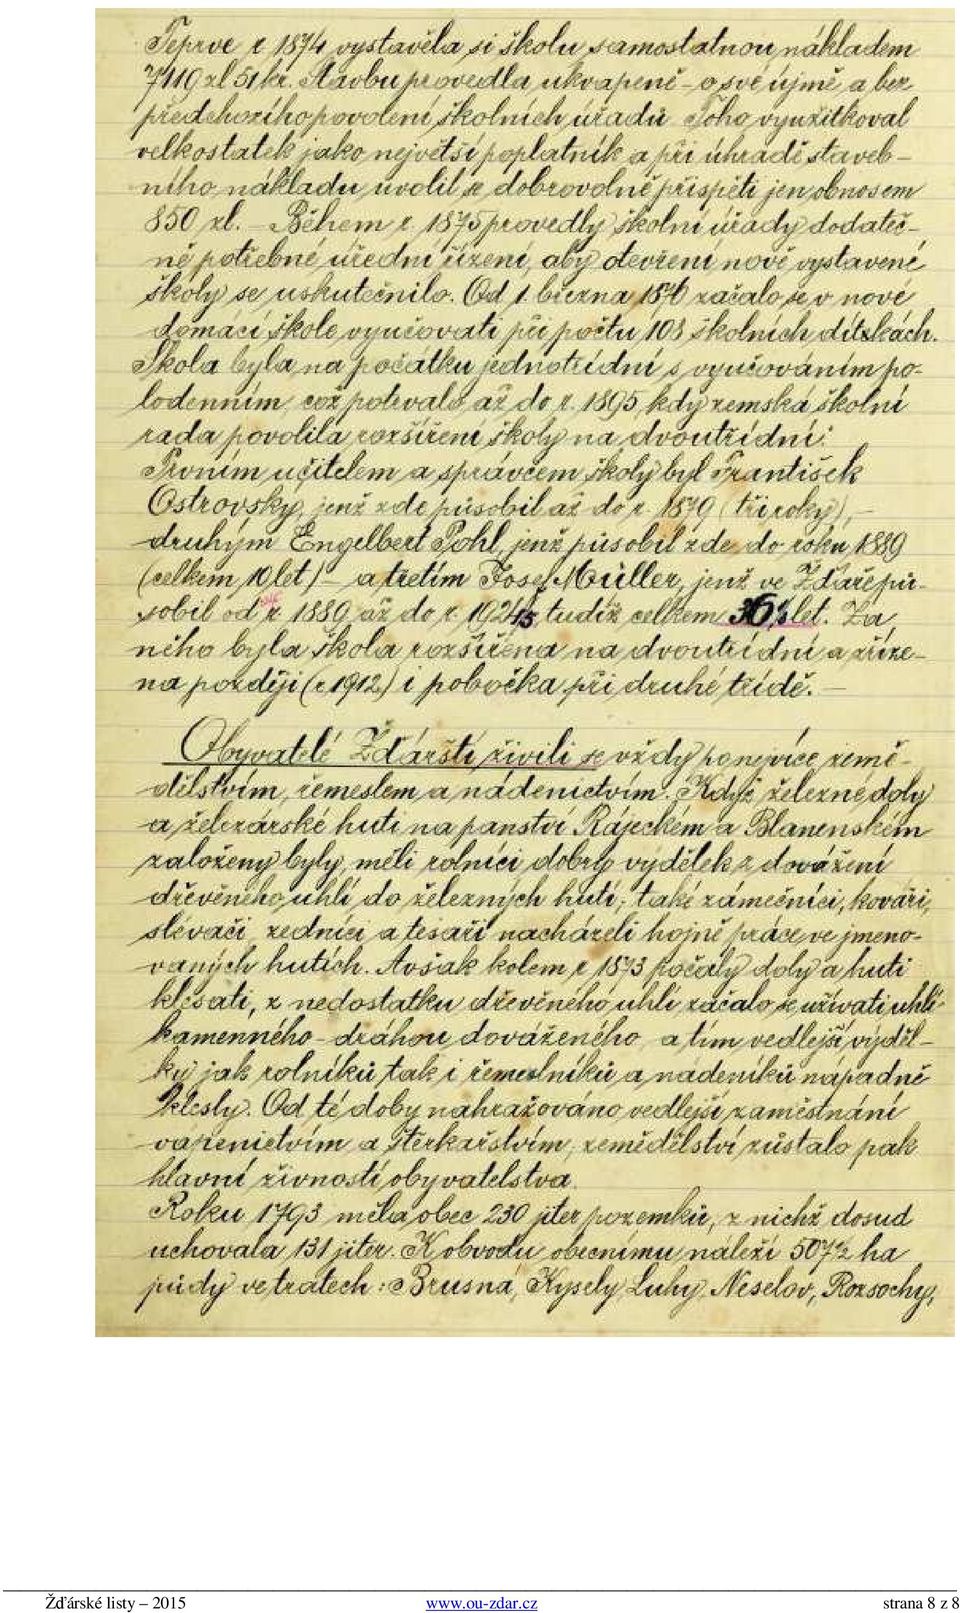 Teprve r 1874 vystavěla si školu samostatnou nákladem
7119 zl 51 kr. Stavbu provedla ukvapeně - o své újmě a bez
předchozího povolení školních úřadů. Toho využitkoval
velkostatek jako největší poplatník a při úhradě staveb-
ního nákladu uvolil se dobrovolně přispěti jen obnosem
850 zl. - Během r. 1875 provedly školní úřady dodateč-
ně potřebné úřední řízení, aby otevření nově vystavené
školy se uskutečnilo. Od 1. března 1876 začalo se v nové
domácí škole vyučovati při počtu 103 školních dítkách.
Škola byla na počátku jednotřídní s vyučováním po-
lodenním, což potrvalo až do r. 1895, kdy zemská školní
rada povolila rozšíření školy na dvoutřídní.
Prvním učitelem a správcem školy byl František
Ostrovský, jenž zde působil až do r. 1879 (tři roky), -
druhým Engelbert Pohl, jenž působil zde do roku 1889
(celkem 10 let) - a třetím Josef Müller, jenž ve Žďáře pů-
sobil od r. 1889 až do r. 1925, tudíž celkem 36 let. Za
něho byla škola rozšířena na dvoutřídní a zříze-
na později (r 1912) i pobočka při druhé třídě. -
Obyvatelé Žďárští živili se vždy ponejvíce země-
dělstvím, řemeslem a nádenictvím. Když železné doly
a železárské hutí na panství Rájeckém a Blanenském
založeny byly, měli rolníci dobrý výdělek z dovážení
dřevěného uhlí do železných hutí; také zámečníci, kováři,
slévači, zedníci a tesaři nacházeli hojně práce ve jmeno-
vaných hutích. Avšak kolem r. 1873 počaly doly a huti
klesati, z nedostatku dřevěného uhlí začalo se užívati uhlí
kamenného - dráhou dováženého a tím vedlejší výděl-
ky jak rolníků tak i řemeslníků a nadeníků nápadně
klesly. Od té doby nahražováno vedlejší zaměstnání
vápenictvím a štěrkařstvím, zemědělství zůstalo pak
hlavní živností obyvatelstva.
Roku 1793 měla obec 230 jiter pozemků, z nichž dosud
uchovala 131 jiter. K obvodu obecnímu náleží 507½ ha
půdy ve tratech: Brusná, Kysely, Luhy, Neselov, Rozsochy,
Žďárské listy – 2015 www.ou-zdar.cz strana 8 z 8